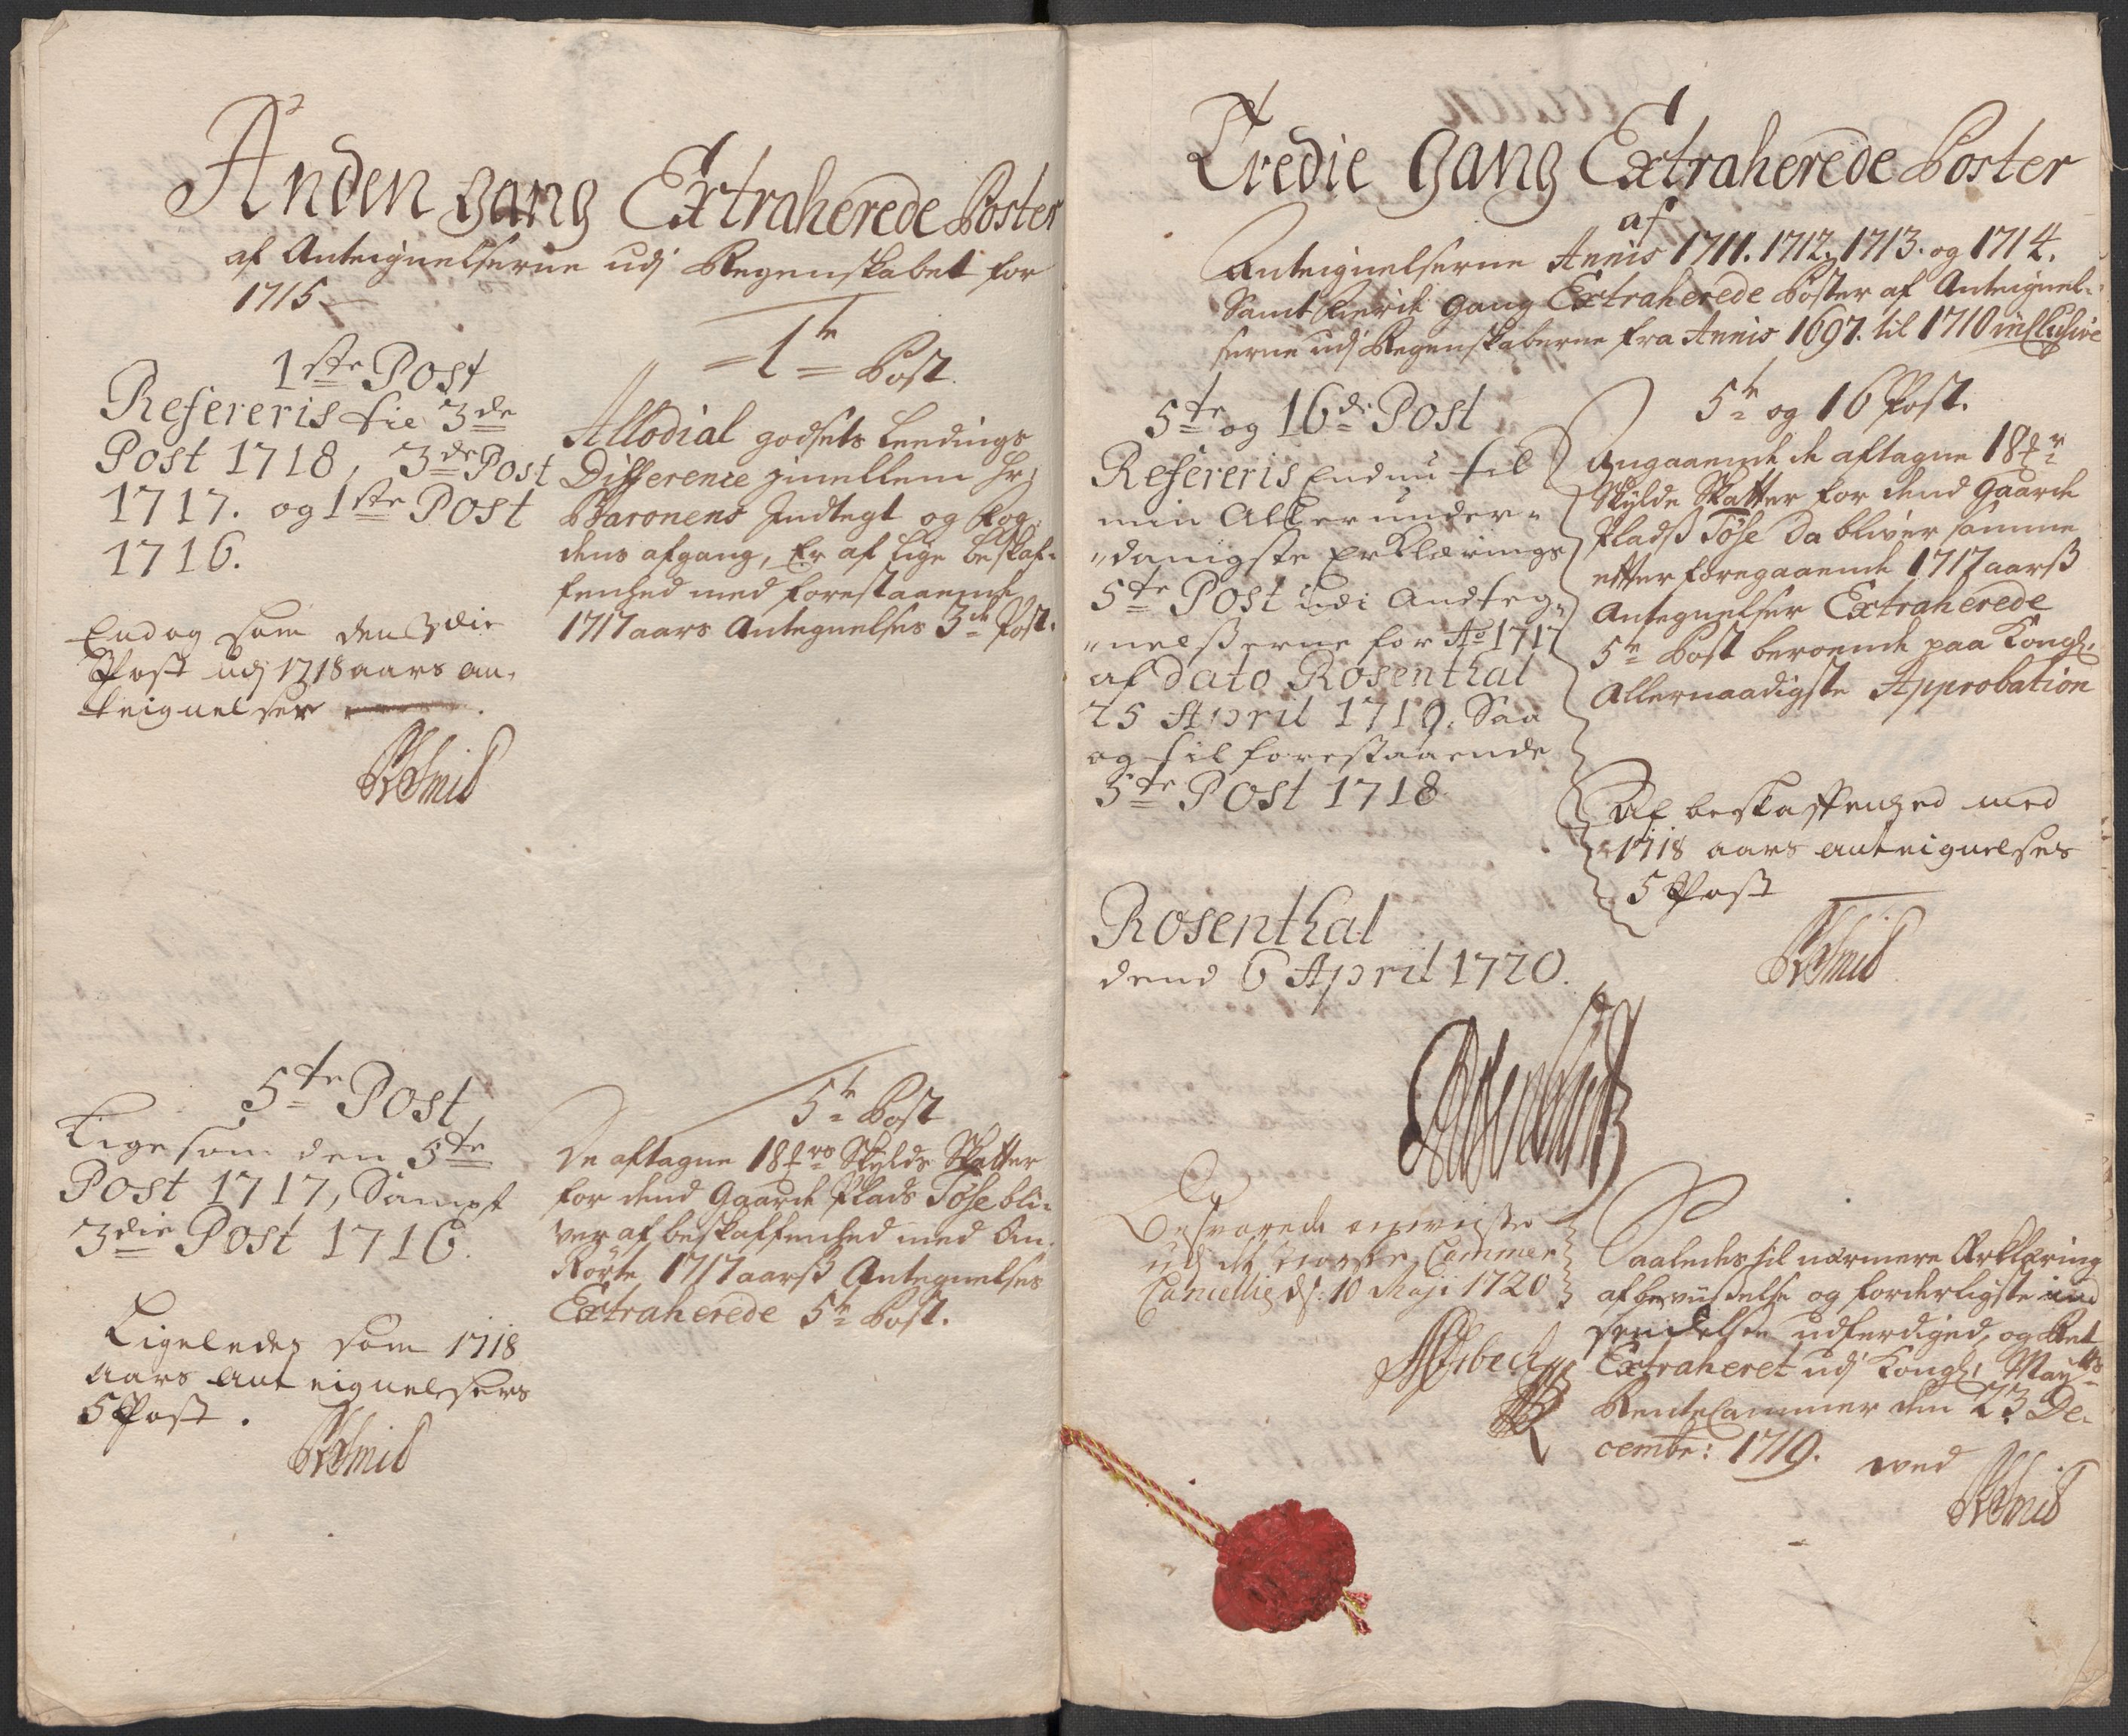 Anden gang Extraherede Poster
af Anteignelserne udj Regenskabet for
1715
1ste Post
Refereris til 3de
Post 1718, 3de Post
1717. og 1ste Post
1716.
Endog som den 3die
Post udj 1718 aars an-
teignelser
RSmid
1te Post.
Allodial godsets Leedings
Difference imellem Hr:
Baronens Indtegt og Fog-
dens afgang, Er af lige beskaf-
fenhed med forestaaende
1717 aars Antegnelses 3de Post.
5te Post
Lige som den 5te
Post 1717, Sampt
3die Post 1716.
Ligeledes som 1718
aars anteignelsers
5 Post.
RSmid
5te Post
De aftagne 18 Skylds Skatter
for dend Gaarde Plads Töse bli-
ver af beskaffenhed med An-
Rörte 1717 aarss Antegnelses
Extraherede 5te Post.
Tredie Gang Extraherede Poster
af
Anteignelserne Annis 1711. 1712. 1713. og 1714.
Samt fierde Gang Extraherede Poster af Anteignel-
serne udj Regenskaberne fra Annis 1697. til 1710 inclusive
5te og 16de Post
Refereris Endnu til
min Allerunder-
danigste Erklærings
5te Post udi Andteg-
nelsserne for Ao 1717
af dato Rosenthal
25 April 1719. Saa
og til forestaaende
5te Post 1718
Rosenthal
dend 6 April 1720.
5te og 16 Post.
Angaaende de aftagne 18
Skylds Skatter for dend Gaarde
Pladss Töse Da bliver samme
efter foregaaende 1717 aarss
Antegnelser Extraherede
5te Post beroende paa Kongl.
Allernaadigste Approbation
Af beskaffenhed med
1718 aars anteignelses
5 Post
RSmid
udj det Norske Cammer
Cancellie d: 10 Maji 1720
Saaledes til nærmere Erklæring
afheviisdelse og forderligste ind
sendelse udferdiged, og Ret
Extraheret udj Kongl. Mayts
RenteCammer den 23 De-
cembr: 1719. ved
RSmid